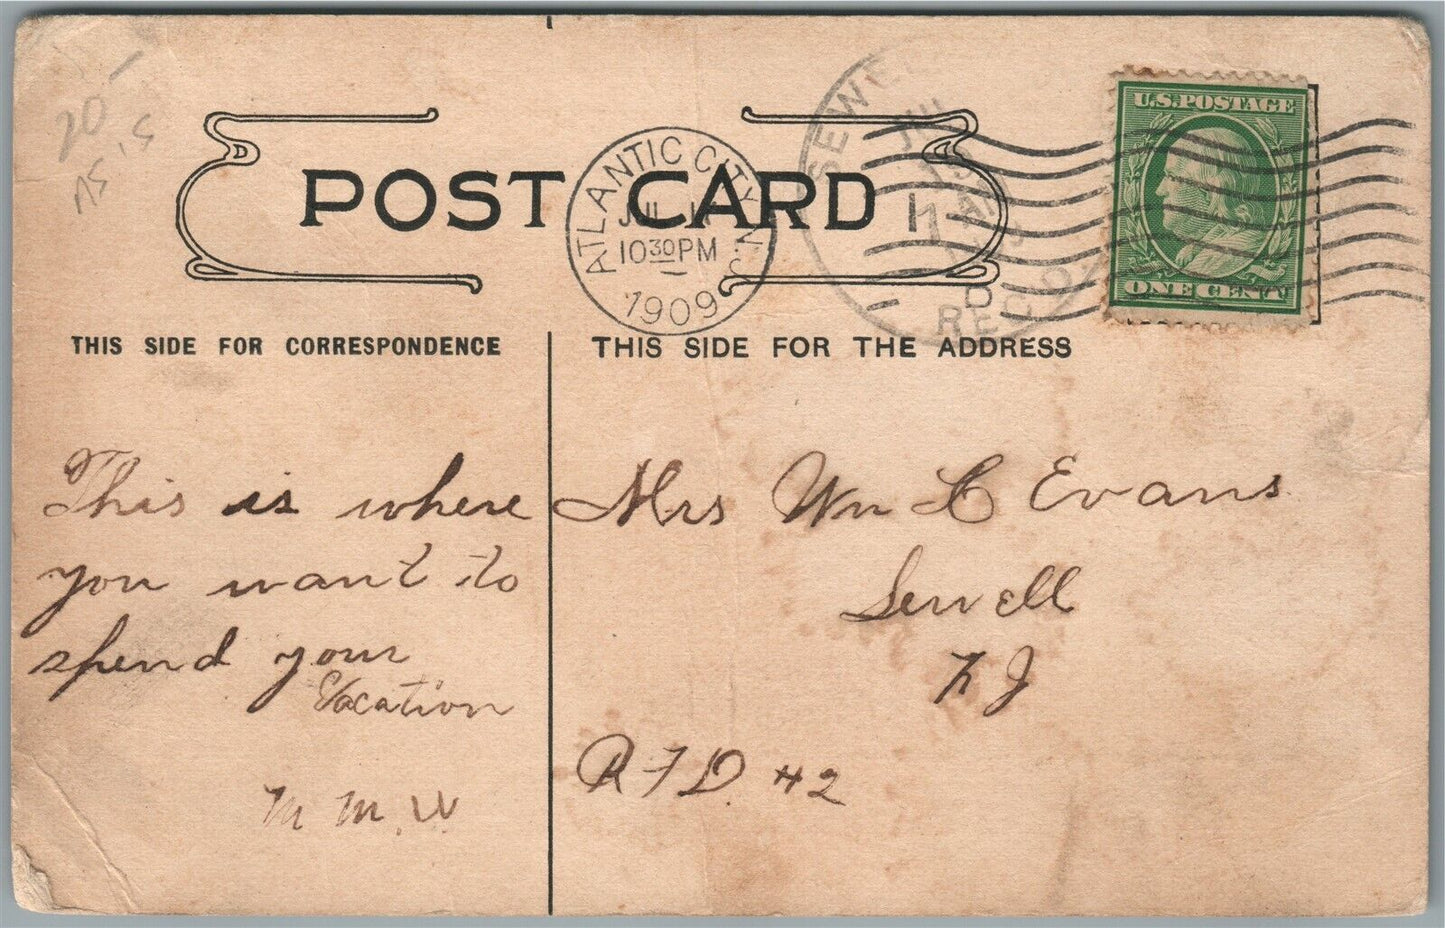 20-
POST CARD
ATLANTIC CITY, N.J.
JUL
10 30 PM
1909
SEWE
JUL
AM
REC'D.
U.S. POSTAGE
ONE CENT
THIS SIDE FOR CORRESPONDENCE
THIS SIDE FOR THE ADDRESS
This is where
you want to
spend your
Vacation
M. M. W.
Mrs Wm C Evans
Sewell
N J
R F D. #2